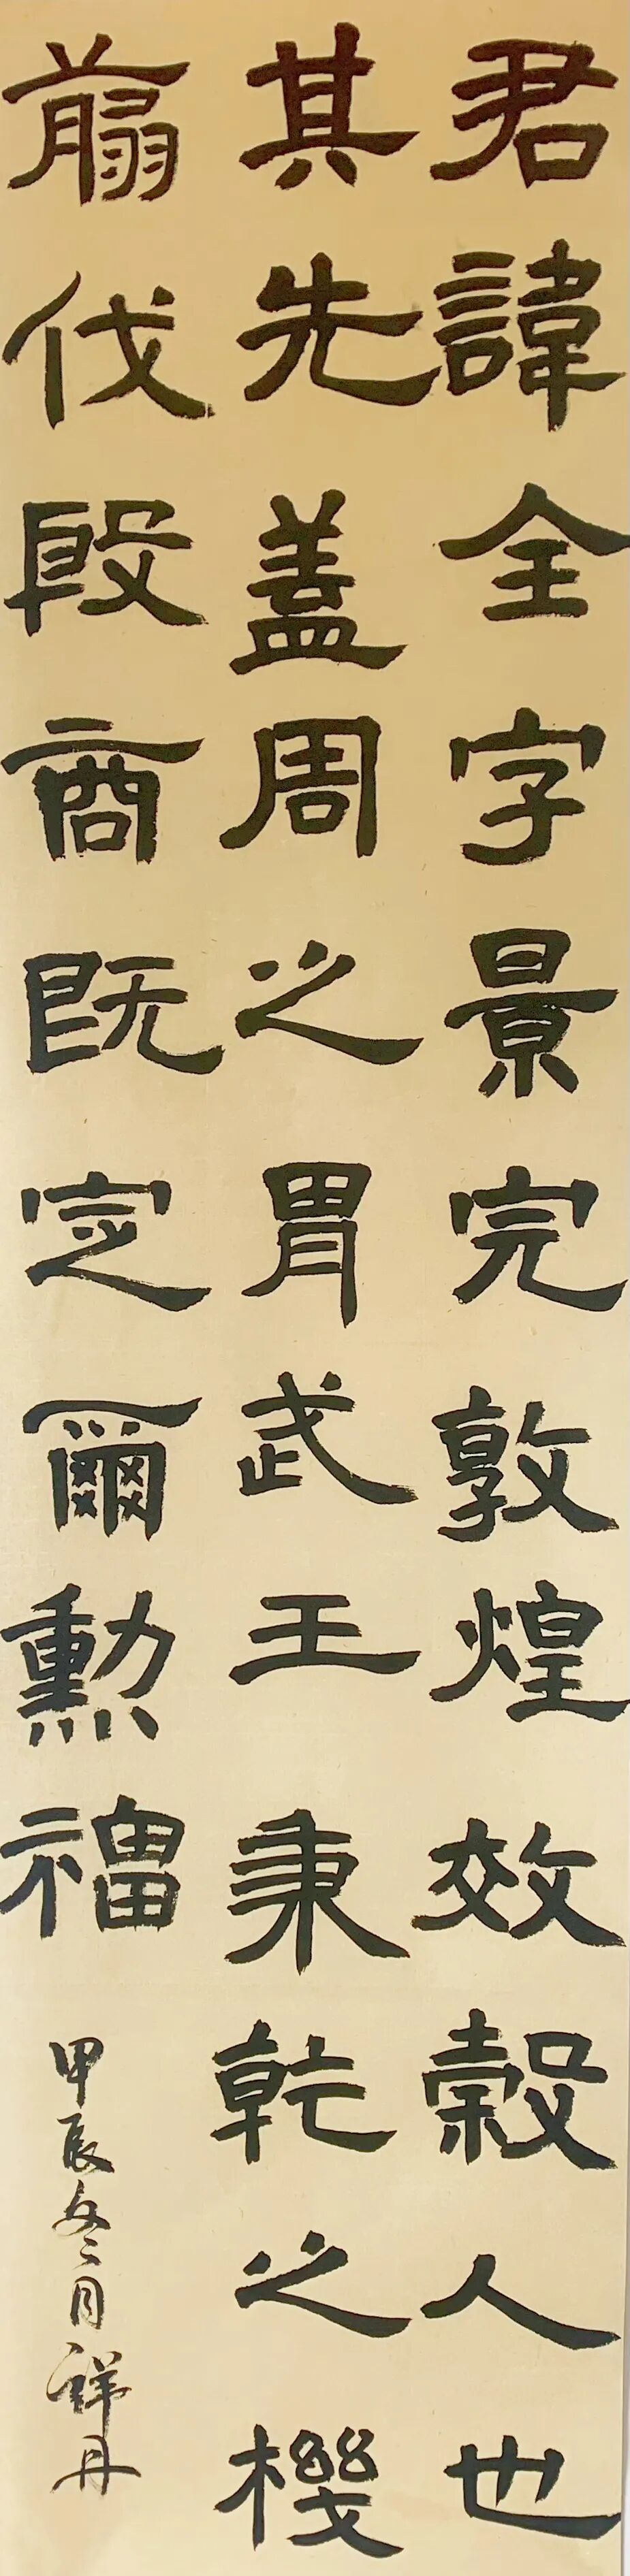 君諱全字景完敦煌效穀人也
其先蓋周之胄武王秉乾之機
翦伐殷商既定爾勳福
甲辰冬月祥丹